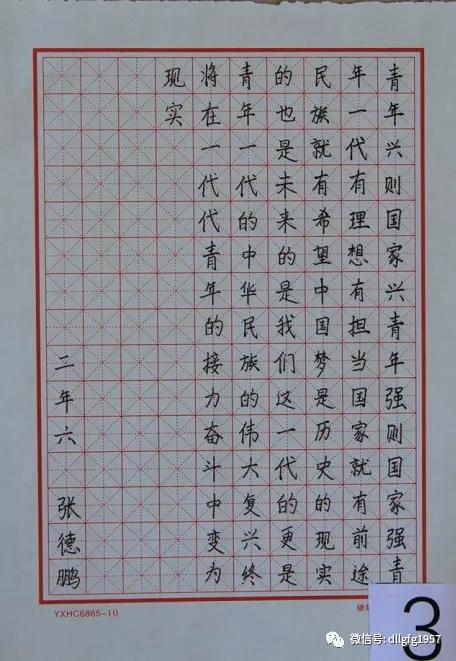 青年兴则国家兴青年强则国家强青
年一代有理想有担当国家就有前途
民族就有希望中国梦是历史的现实
的也是未来的是我们这一代的更是
青年一代的中华民族的伟大复兴终
将在一代代青年的接力奋斗中变为
现实
三年六 张德鹏
YXHC6865-10
硬
3
微信号: dllgfg1957